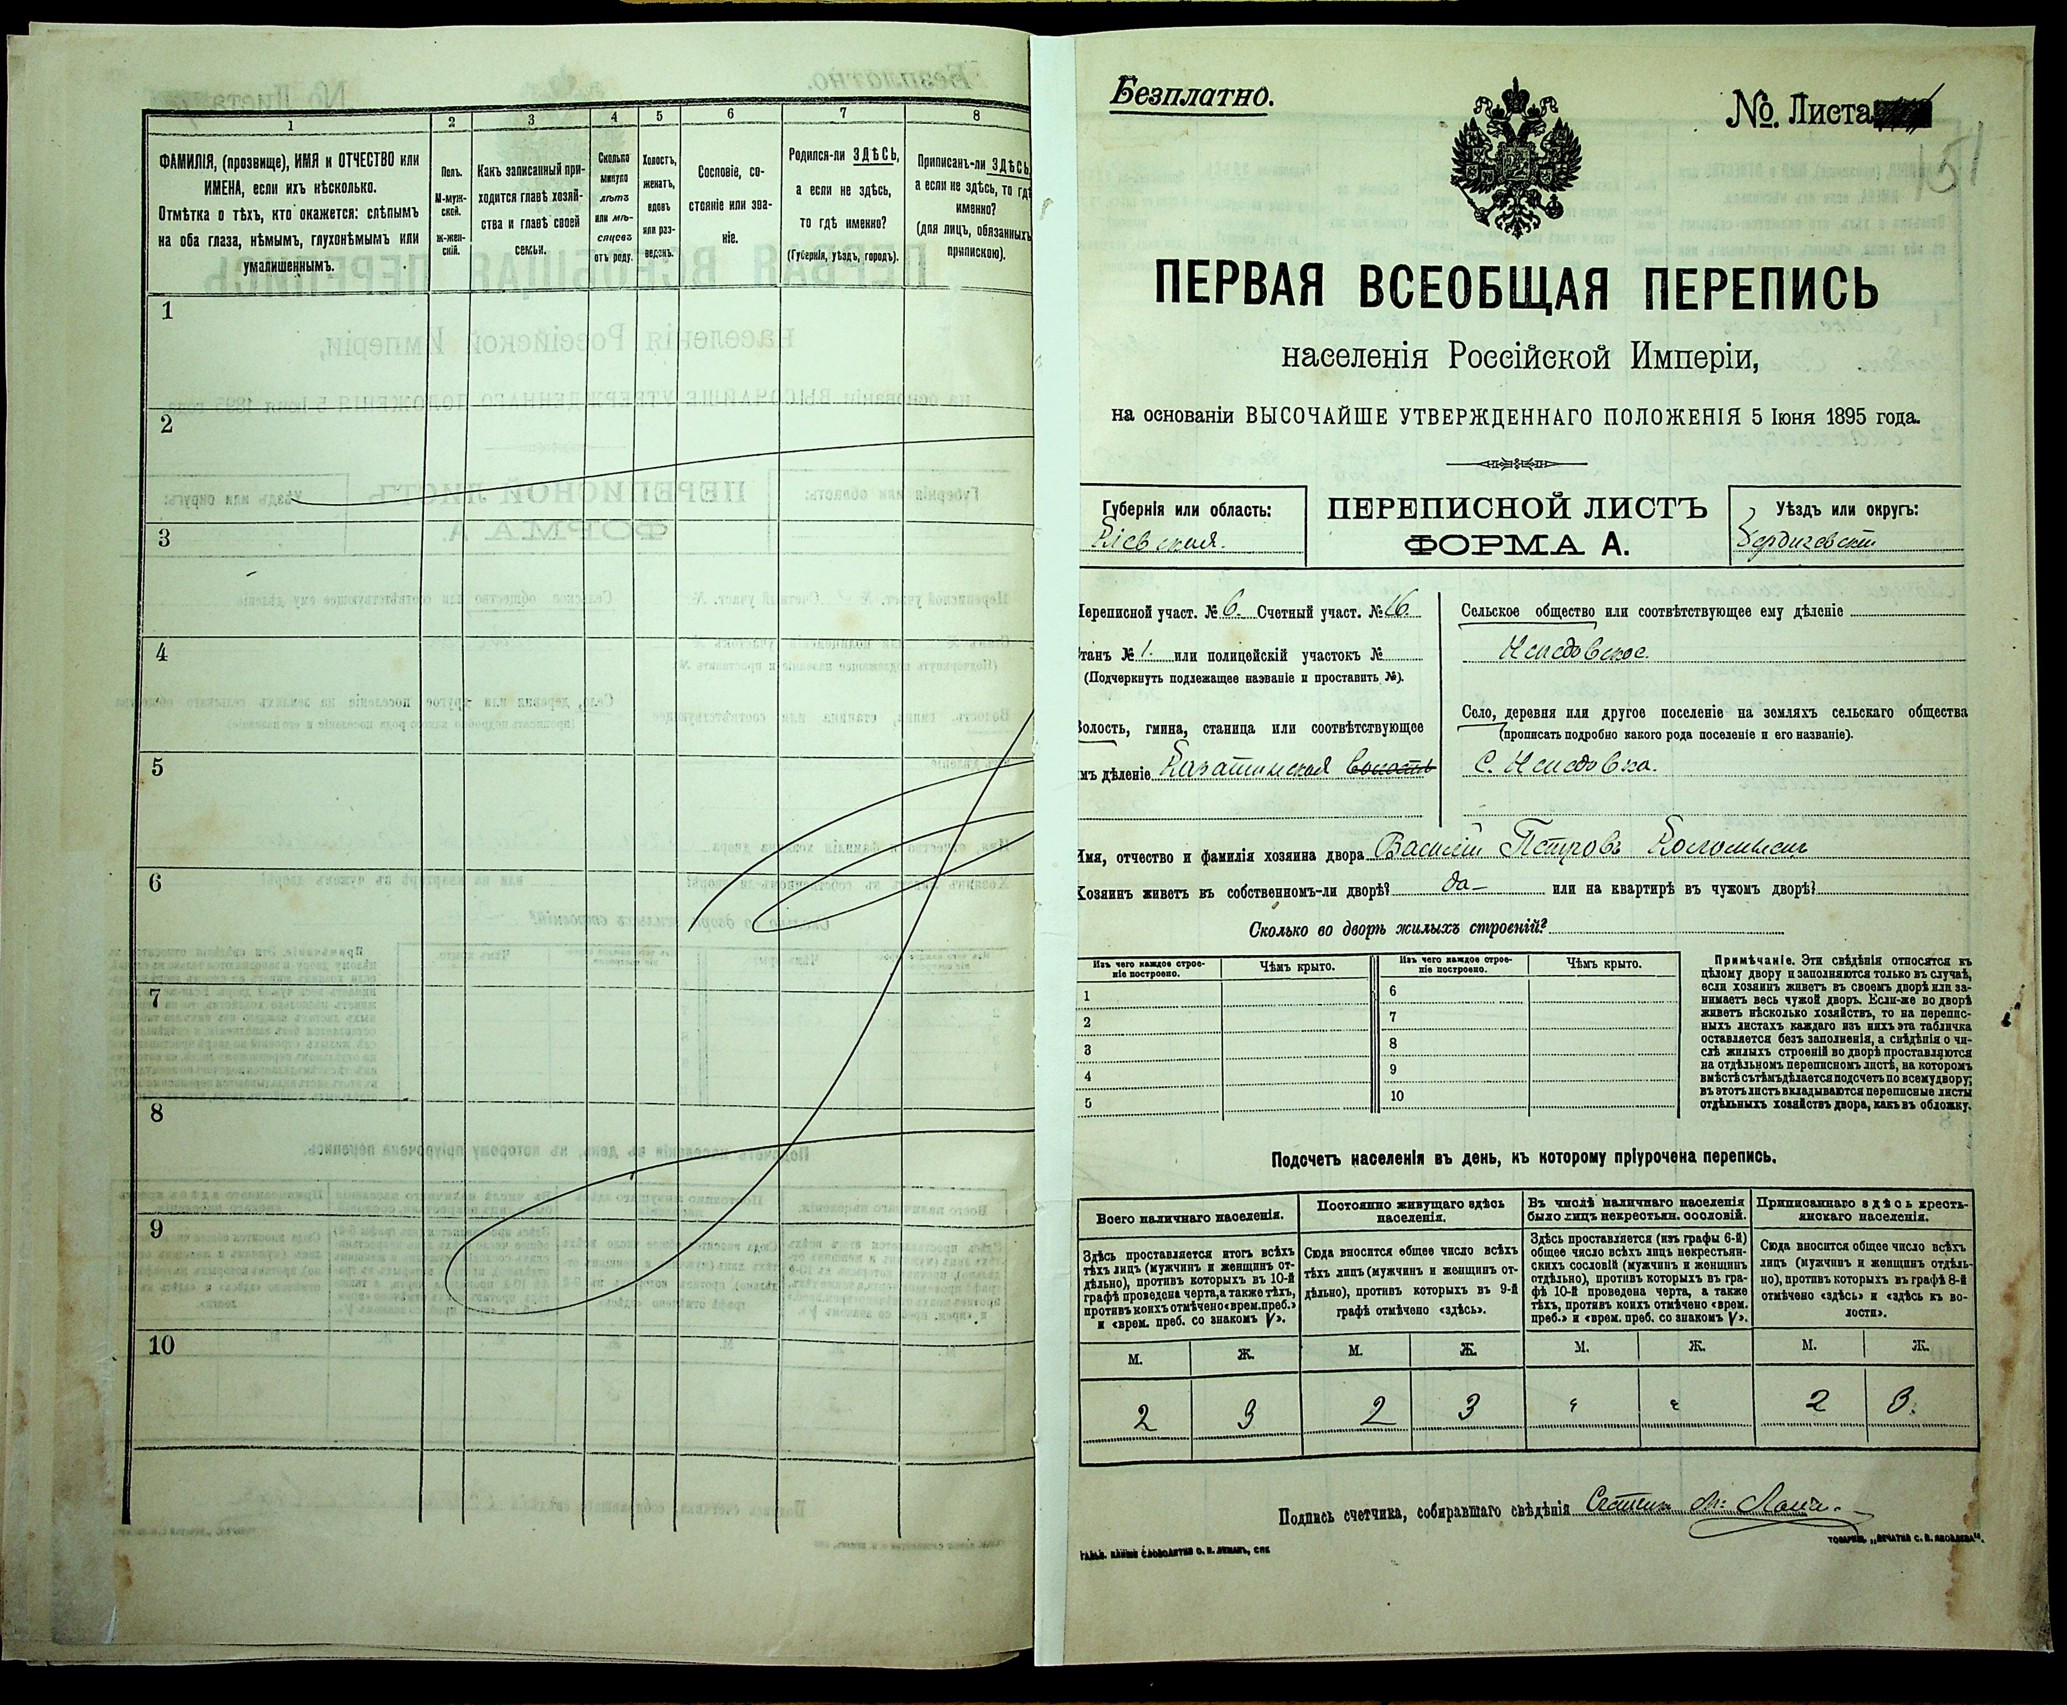 1
2
3
4
5
6
7
8
ФАМИЛІЯ, (прозвище), ИМЯ и ОТЧЕСТВО или
ИМЕНА, если ихъ нѣсколько.
Отмѣтка о тѣхъ, кто окажется: слѣпымъ
на оба глаза, нѣмымъ, глухонѣмымъ или
умалишеннымъ.
Полъ.
М-муж-
ской.
ж-жен-
скій.
Какъ записанный при-
ходится главѣ хозяй-
ства и главѣ своей
семьи.
Сколько
минуло
лѣтъ
или мѣ-
сяцевъ
отъ роду.
Холостъ,
женатъ,
вдовъ
или раз-
веденъ.
Сословіе, со-
стояніе или зва-
ніе.
Родился-ли ЗДѢСЬ,
а если не здѣсь,
то гдѣ именно?
(Губернія, уѣздъ, городъ).
Приписанъ-ли ЗДѢСЬ,
а если не здѣсь, то гдѣ
именно?
(для лицъ, обязанныхъ
припискою).
1
2
3
4
5
6
7
8
9
10
Безплатно.
№. Листа
151
ПЕРВАЯ ВСЕОБЩАЯ ПЕРЕПИСЬ
населенія Россійской Имперіи,
на основаніи ВЫСОЧАЙШЕ УТВЕРЖДЕННАГО ПОЛОЖЕНІЯ 5 Іюня 1895 года.
Губернія или область:
Кіевская.
ПЕРЕПИСНОЙ ЛИСТЪ
ФОРМА А.
Уѣздъ или округъ:
Бердичевскій
Переписной участ. № 6. Счетный участ. № 16.
Станъ № 1. или полицейскій участокъ №
(Подчеркнуть подлежащее названіе и проставить №).
Волость, гмина, станица или соотвѣтствующее
имъ дѣленіе Казатинская волость
Сельское общество или соотвѣтствующее ему дѣленіе
Село, деревня или другое поселеніе на земляхъ сельскаго общества
(прописать подробно какого рода поселеніе и его названіе).
с.
Имя, отчество и фамилія хозяина двора Василій Петровъ
Хозяинъ живетъ въ собственномъ-ли дворѣ? да — или на квартирѣ въ чужомъ дворѣ?
Сколько во дворѣ жилыхъ строеній?
Изъ чего каждое строе-
ніе построено.
Чѣмъ крыто.
Изъ чего каждое строе-
ніе построено.
Чѣмъ крыто.
1
2
3
4
5
6
7
8
9
10
Примѣчаніе. Эти свѣдѣнія относятся къ
цѣлому двору и заполняются только въ случаѣ,
если хозяинъ живетъ въ своемъ дворѣ или за-
нимаетъ весь чужой дворъ. Если-же во дворѣ
живетъ нѣсколько хозяйствъ, то на перепис-
ныхъ листахъ каждаго изъ нихъ эта табличка
оставляется безъ заполненія, а свѣдѣнія о чи-
слѣ жилыхъ строеній во дворѣ проставляются
на отдѣльномъ переписномъ листѣ, на которомъ
вмѣстѣ съ тѣмъ дѣлается подсчетъ по всему двору;
въ этотъ листъ вкладываются переписные листы
отдѣльныхъ хозяйствъ двора, какъ въ обложку.
Подсчетъ населенія въ день, къ которому пріурочена перепись.
Всего наличнаго населенія.
Здѣсь проставляется итогъ всѣхъ
тѣхъ лицъ (мужчинъ и женщинъ от-
дѣльно), противъ которыхъ въ 10-й
графѣ проведена черта, а также тѣхъ,
противъ коихъ отмѣчено «врем. преб.»
и «врем. преб. со знакомъ V».
Постоянно живущаго здѣсь
населенія.
Сюда вносится общее число всѣхъ
тѣхъ лицъ (мужчинъ и женщинъ от-
дѣльно), противъ которыхъ въ 9-й
графѣ отмѣчено «здѣсь».
Въ числѣ наличнаго населенія
было лицъ некрестьян. сословій.
Здѣсь проставляется (изъ графы 6-й)
общее число всѣхъ лицъ некрестьян-
скихъ сословій (мужчинъ и женщинъ
отдѣльно), противъ которыхъ въ гра-
фѣ 10-й проведена черта, а также
тѣхъ, противъ коихъ отмѣчено «врем.
преб.» и «врем. преб. со знакомъ V».
Приписаннаго здѣсь кресть-
янскаго населенія.
Сюда вносится общее число всѣхъ
лицъ (мужчинъ и женщинъ отдѣль-
но), противъ которыхъ въ графѣ 8-й
отмѣчено «здѣсь» и «здѣсь къ во-
лости».
М. Ж. М. Ж. М. Ж. М. Ж.
2 3 2 3 " " 2 3.
Подпись счетчика, собиравшаго свѣдѣнія
ТОВАРИЩ. „ПЕЧАТНЯ С. П. ЯКОВЛЕВА“.